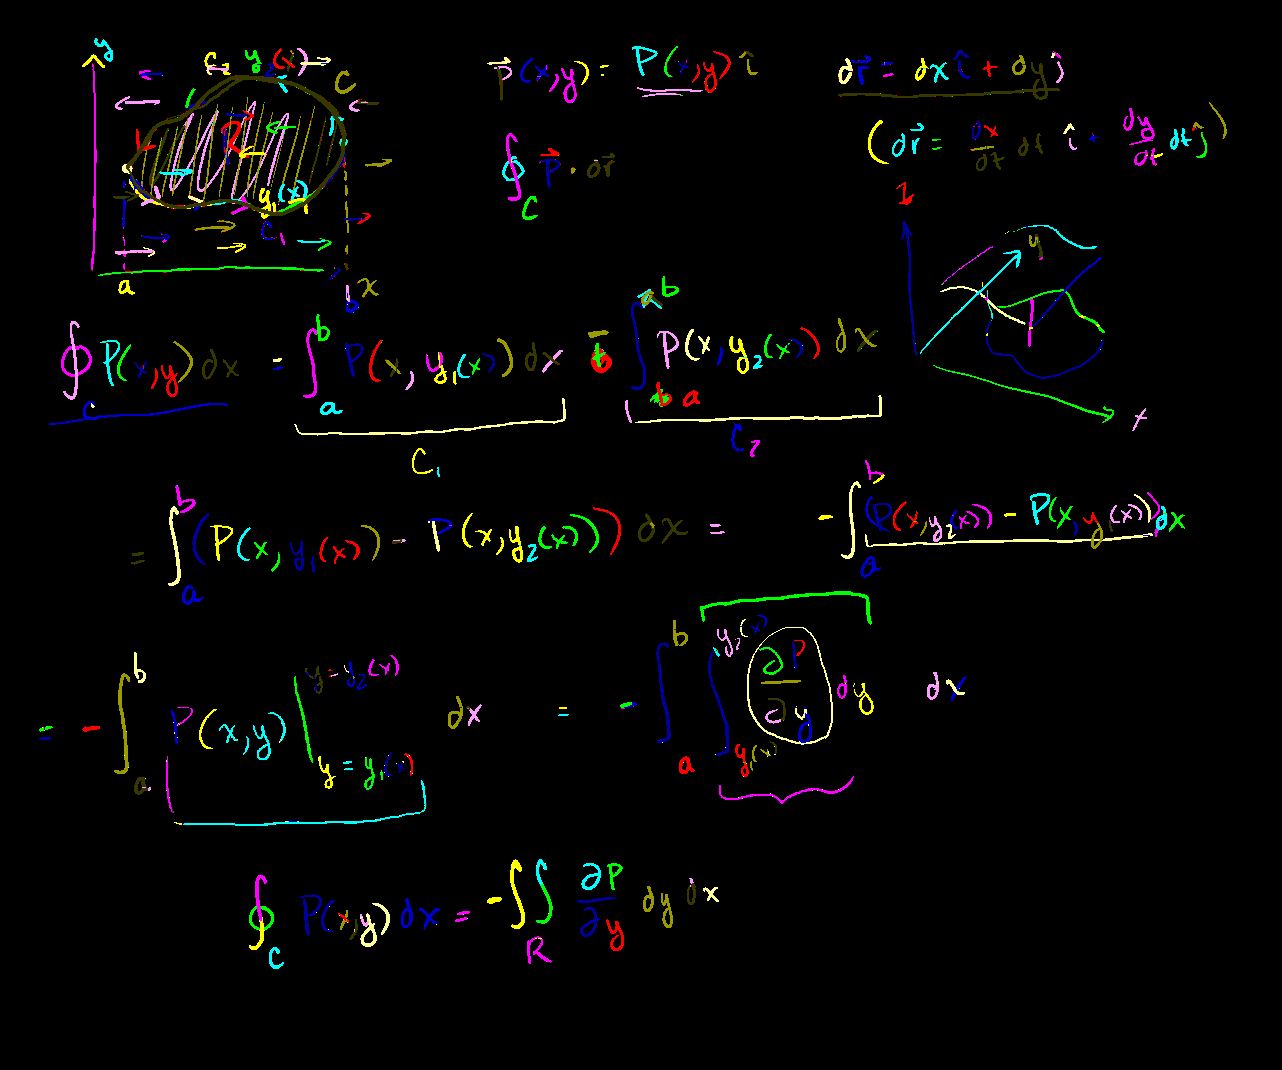 y
C₂ y₂(x)
C
R
y₁(x)
C₁
a b x
P⃗(x,y) = P(x,y) î
dr⃗ = dx î + dy ĵ
∮_C P⃗ · dr⃗
(dr⃗ = dx/dt dt î + dy/dt dt ĵ)
z
y
x
∮_C P(x,y) dx = ∫_a^b P(x, y₁(x)) dx - ∫_a^b P(x, y₂(x)) dx
C₁ C₂
= ∫_a^b (P(x, y₁(x)) - P(x, y₂(x))) dx = -∫_a^b (P(x, y₂(x)) - P(x, y₁(x))) dx
= -∫_a^b P(x,y) |_{y=y₁(x)}^{y=y₂(x)} dx = -∫_a^b ∫_{y₁(x)}^{y₂(x)} ∂P/∂y dy dx
∮_C P(x,y) dx = -∫∫_R ∂P/∂y dy dx